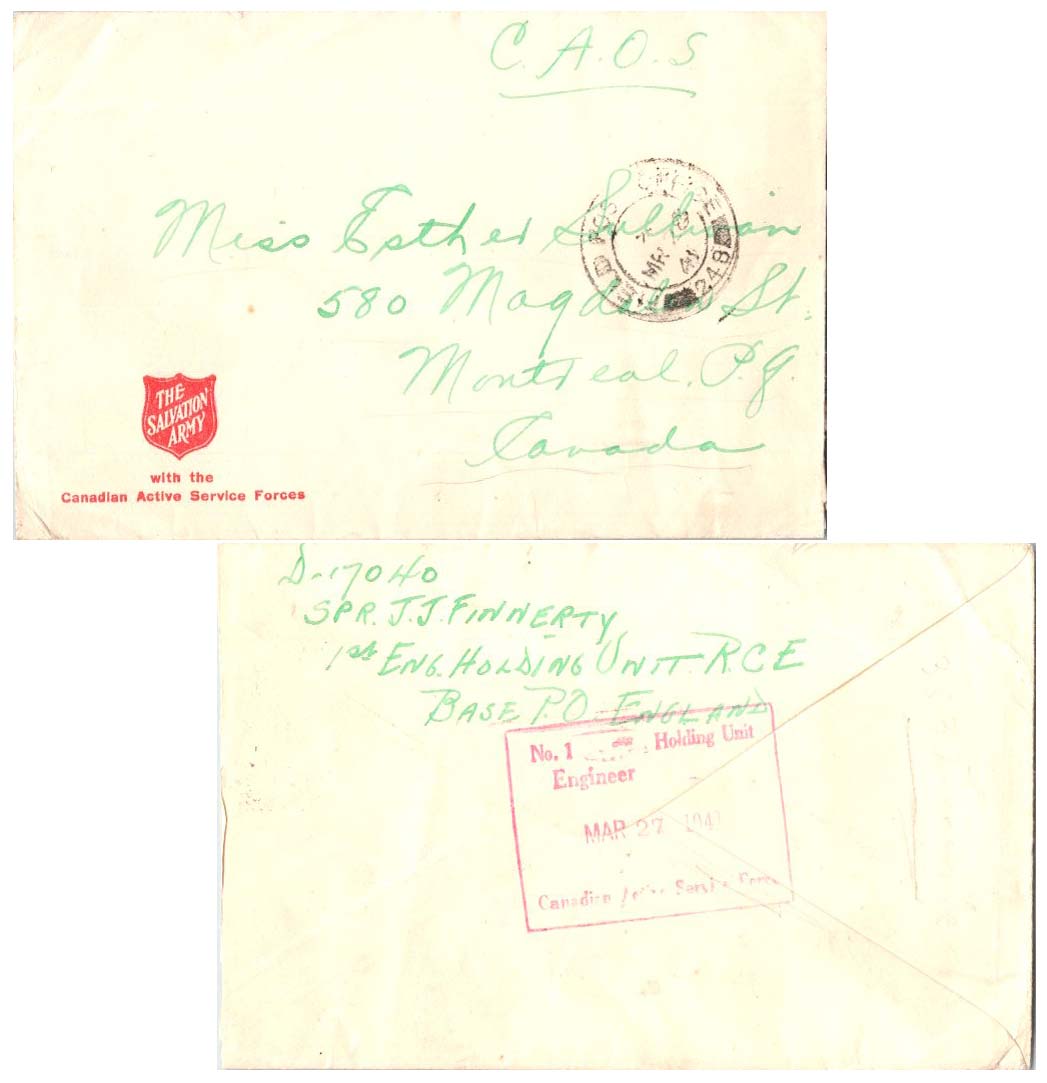 C.A.O.S
Miss Esther Sullivan
580 Magdalen St.
Montreal, P.Q.
Canada
FIELD POST OFFICE
MR
41
248
THE
SALVATION
ARMY
with the
Canadian Active Service Forces
D-17040
SPR. J.J. FINNERTY
1st ENG. HOLDING UNIT. R.C.E
BASE P.O - ENGLAND
No. 1 Holding Unit
Engineer
MAR 27 1941
Canadian Active Service Force